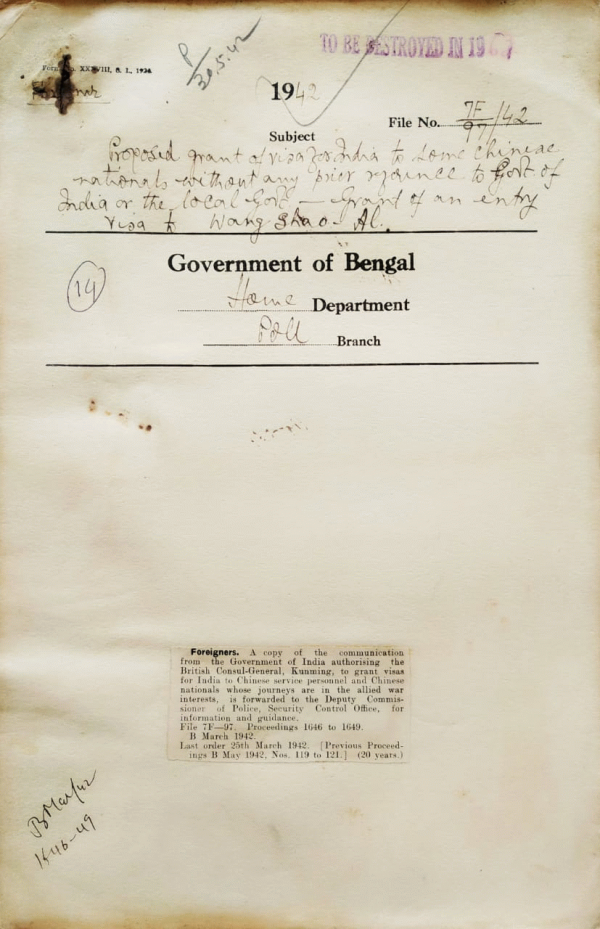 P
30.5.42
TO BE DESTROYED IN 19
Form No. XXXVIII, S. I., 1936.
1942
File No. 7F/97/42
Subject
Proposed grant of visa for India to some Chinese
nationals without any prior reference to Govt of
India or the local Govt — Grant of an entry
visa to Wang Shao-Al.
Government of Bengal
14
Home Department
Poll Branch
Foreigners. A copy of the communication
from the Government of India authorising the
British Consul-General, Kunming, to grant visas
for India to Chinese service personnel and Chinese
nationals whose journeys are in the allied war
interests, is forwarded to the Deputy Commis-
sioner of Police, Security Control Office, for
information and guidance.
File 7F—97. Proceedings 1646 to 1649.
B March 1942.
Last order 25th March 1942. [Previous Proceed-
ings B May 1942, Nos. 119 to 121.] (20 years.)
B Mar/42
1646-49